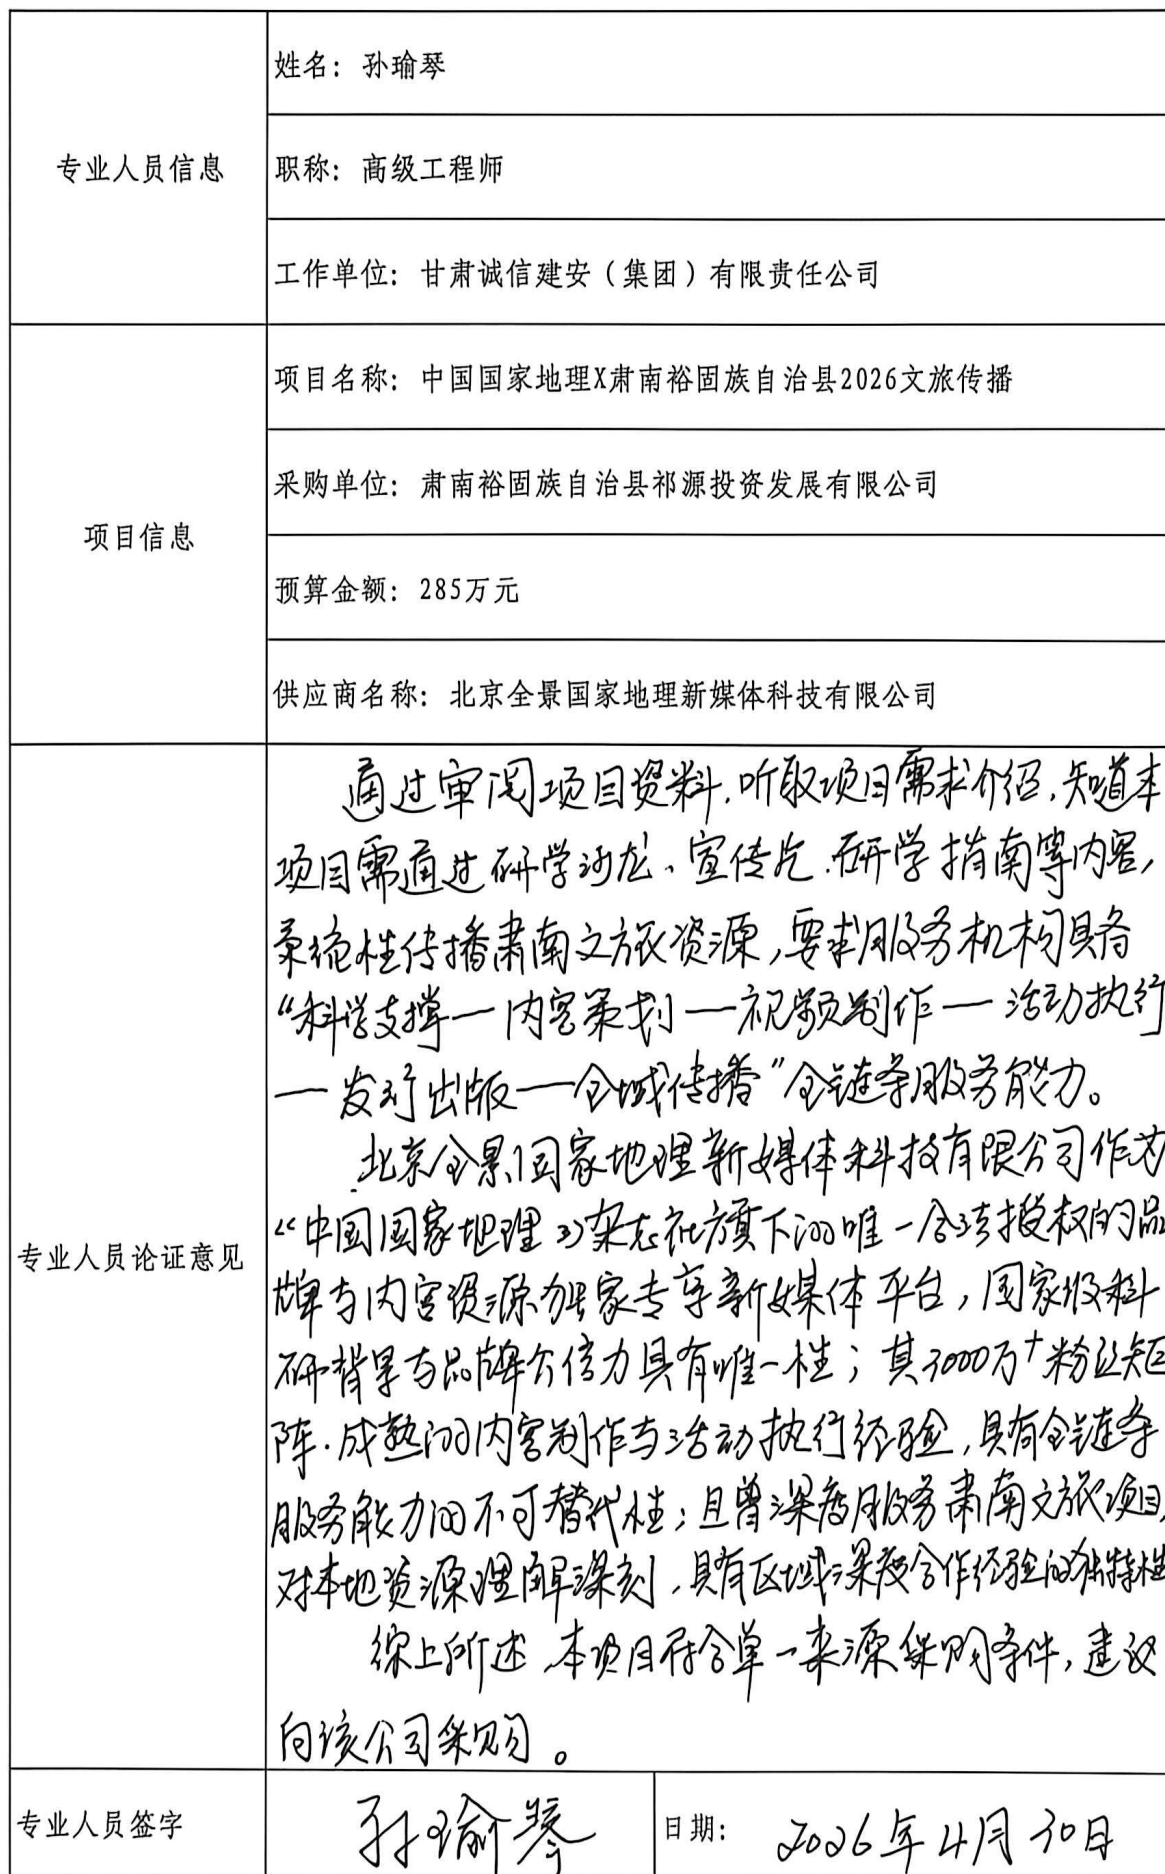 姓名：孙瑜琴
专业人员信息
职称：高级工程师
工作单位：甘肃诚信建安（集团）有限责任公司
项目名称：中国国家地理X肃南裕固族自治县2026文旅传播
采购单位：肃南裕固族自治县祁源投资发展有限公司
项目信息
预算金额：285万元
供应商名称：北京全景国家地理新媒体科技有限公司
通过审阅项目资料，听取项目需求介绍，知道本
项目需通过研学沙龙、宣传片、研学指南等内容，
系统性传播肃南文旅资源，要求服务机构具备
“科学支撑—内容策划—视频制作—活动执行
—发行出版—全域传播”全链条服务能力。
北京全景国家地理新媒体科技有限公司作为
《中国国家地理》杂志社旗下的唯一合法授权的品
专业人员论证意见
牌与内容资源独家专享新媒体平台，国家级科
研背景与品牌公信力具有唯一性；其3000万+粉丝矩
阵、成熟的内容制作与活动执行经验，具有全链条
服务能力的不可替代性；且曾深度服务肃南文旅项目，
对本地资源理解深刻，具有区域深度合作经验的独特性
综上所述，本项目符合单一来源采购条件，建议
向该公司采购。
专业人员签字
孙瑜琴
日期：2026年4月30日